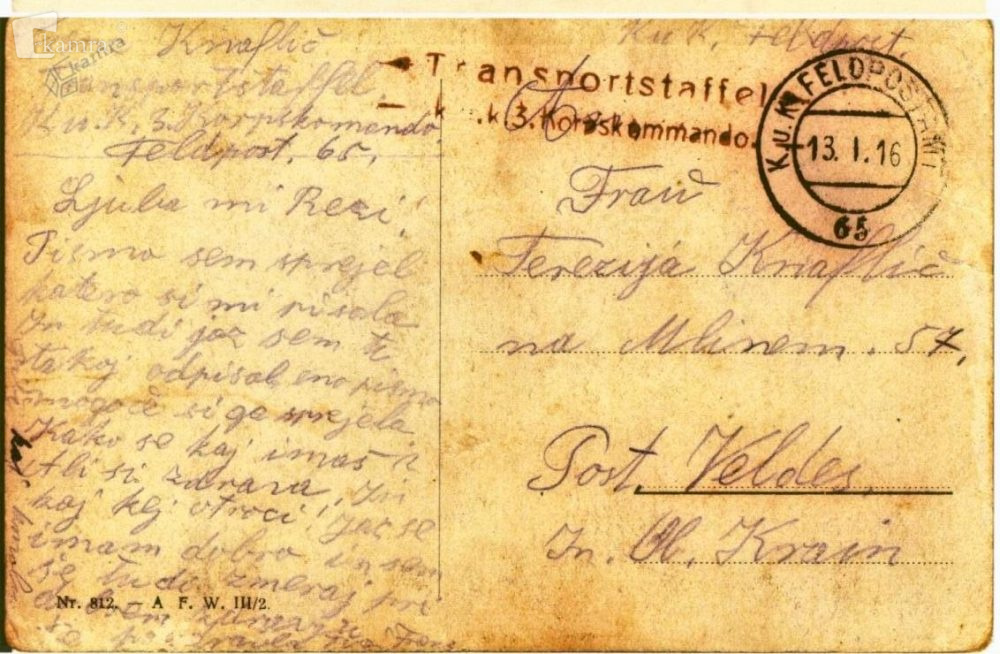 kamra
kamra
Knaflič
Transportstaffel
K.u.K. 3. Korpskomando
Feldpost. 65.
Ljuba mi Rezi!
Pismo sem sprejel
katero si mi pisala
In tudi jaz sem ti
takoj odpisal eno pismo
mogoče si ga sprejela
Kako se kaj imaš?
Ali si zdrava, In
kaj kej otroci! Jaz se
imam dobro in sem
še tudi zmeraj pri
Nr. 812. A F. W. III/2.
K.u.K. Feldpost.
Transportstaffel
k. k. 3. Korpskommando.
K.u.K. FELDPOSTAMT
13. I. 16
65
Frau
Terezija Knaflič
na Mlinem. 57,
Post. Veldes,
In. Ob. Krain